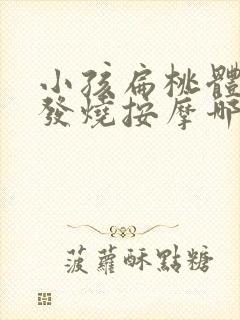 小孩扁桃體
發燒按摩哪
菠蘿酥點糖